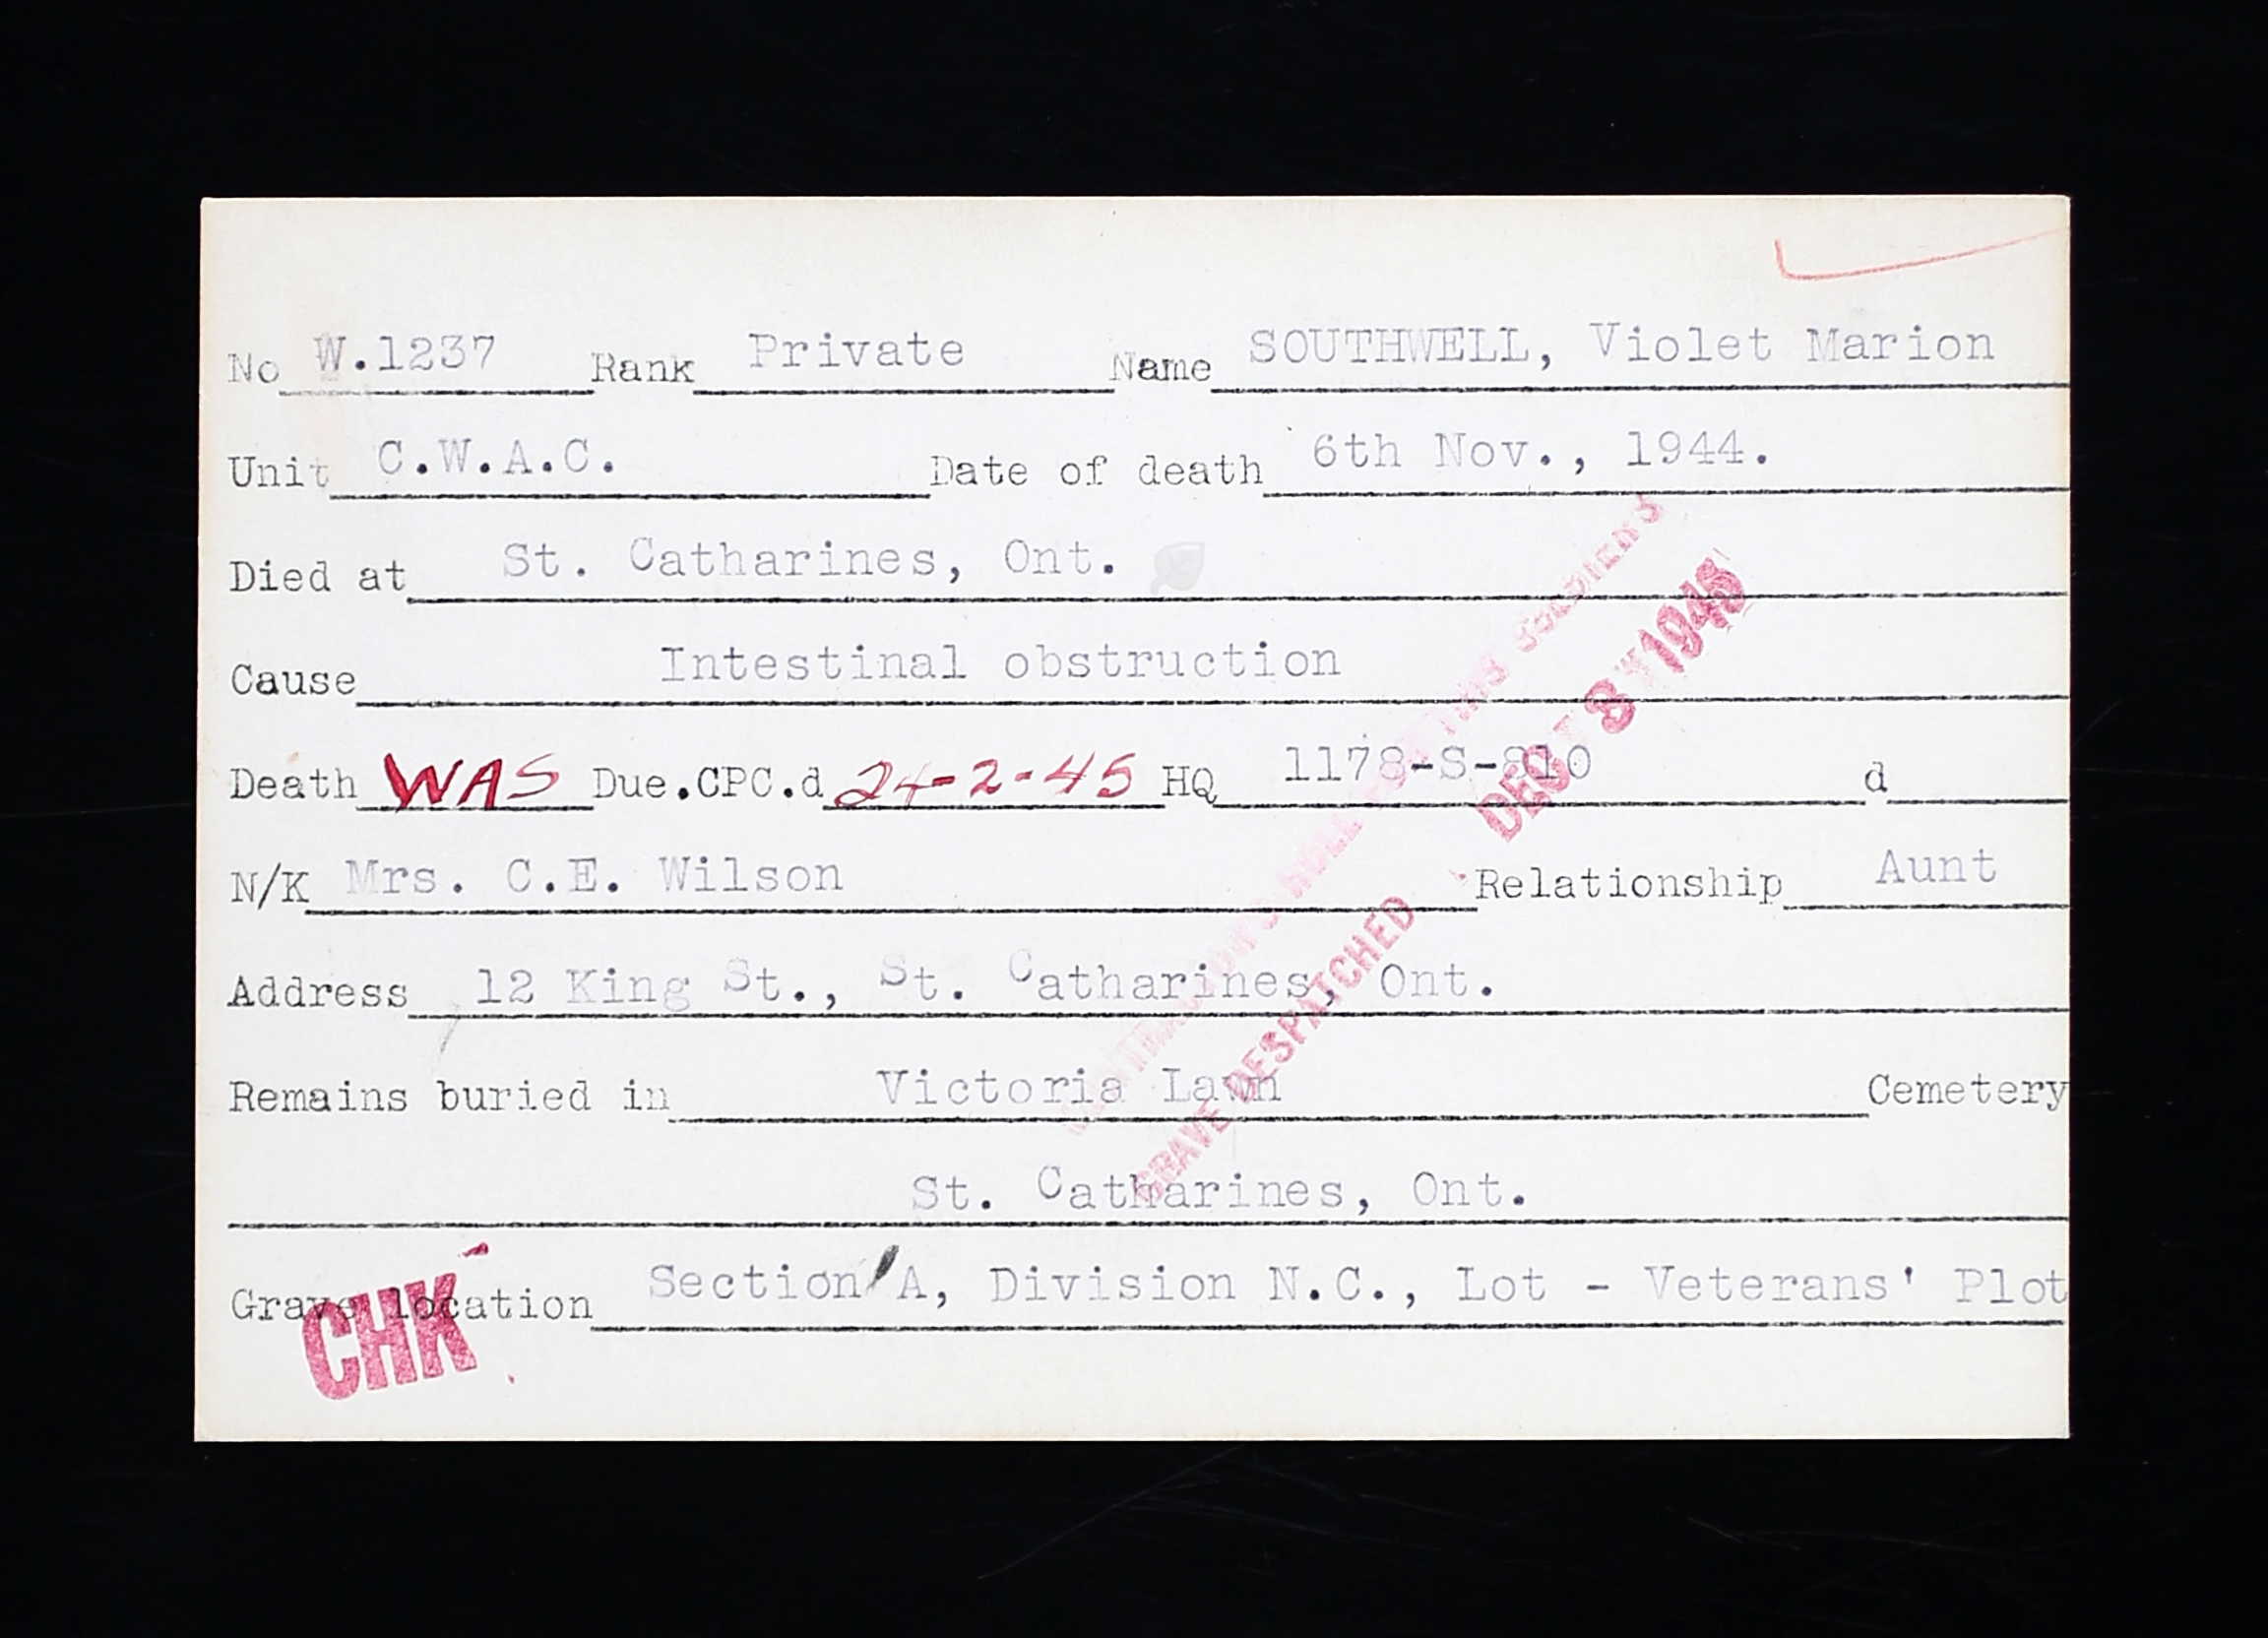 No W.1237 Rank Private Name SOUTHWELL, Violet Marion
Unit C.W.A.C. Date of death 6th Nov., 1944.
Died at St. Catharines, Ont.
Cause Intestinal obstruction
Death WAS Due.CPC.d 24-2-45 HQ 1178-S-810 d
N/K Mrs. C.E. Wilson Relationship Aunt
Address 12 King St., St. Catharines, Ont.
Remains buried in Victoria Lawn Cemetery
St. Catharines, Ont.
Grave location Section A, Division N.C., Lot - Veterans' Plot
CHK
SOLDIER'S
GRAVE DESPATCHED
DEC 3 1945